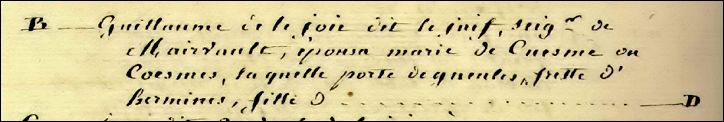 B — Guillaume de le joie dit le juif, seigr de
Mairvault, épousa marie de Cuesme ou
Coesmes, laquelle porte de gueules, fretté d'
hermines, fille d . . . . . . . . . . . . . . — D